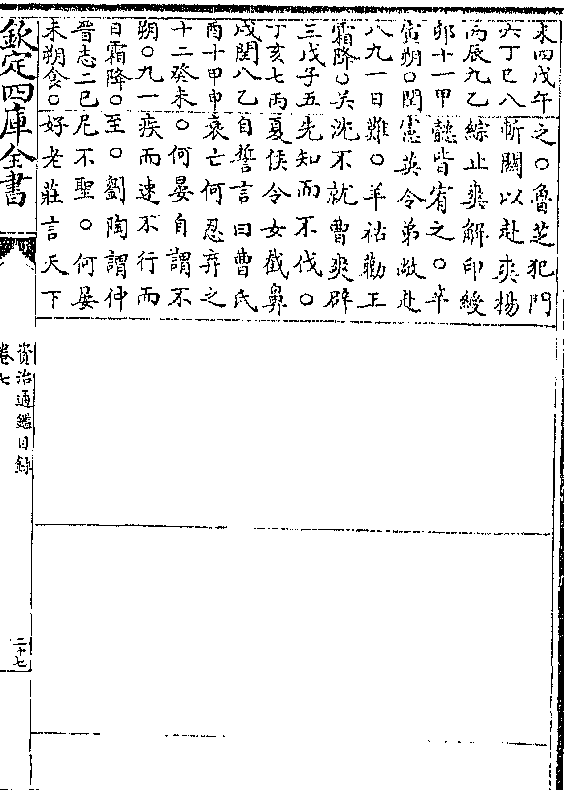 未四戊午之○魯芝犯門
六丁巳八斬關以赴爽楊
丙辰九乙綜止爽解印綬
卯十一甲懿皆宥之○辛
寅朔○閏憲英令弟敞赴
八九一日難○羊祜勸王
霜降○关沈不就曹爽辟
三戊子五先知而不伐○
丁亥七丙夏侯令女截鼻
戌閏八乙自誓言曰曹氏
酉十甲申衰亡何忍弃之
十二癸未○何晏自謂不
朔○九一疾而速不行而
日霜降○至○劉陶謂仲
晉志二己尼不聖○何晏
未朔食○好老莊言天下
欽定四庫全書
資治通鑑目錄
卷七
二十七